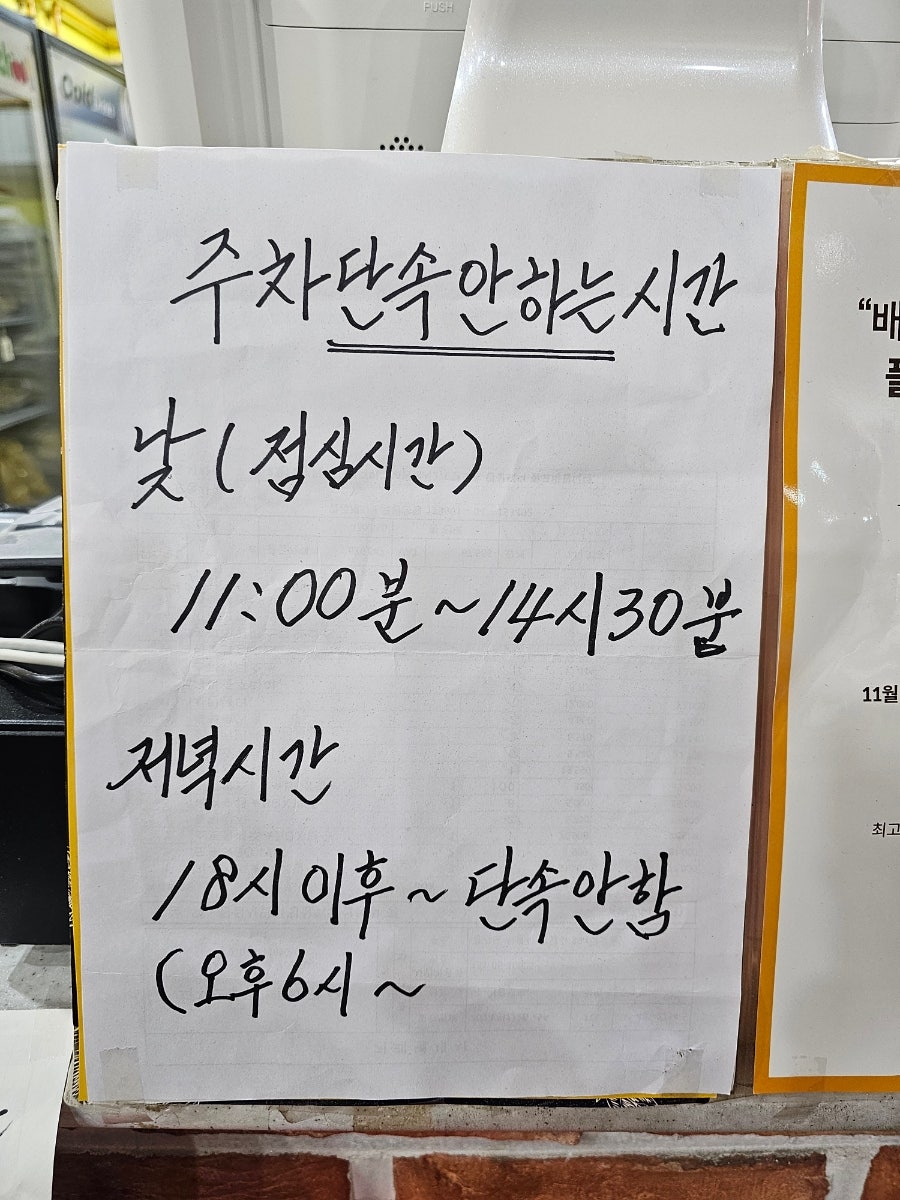 PUSH
주차단속안하는시간
낮(점심시간)
11:00분~14시30분
저녁시간
18시이후~단속안함
(오후6시~
“배
플
11월
최고